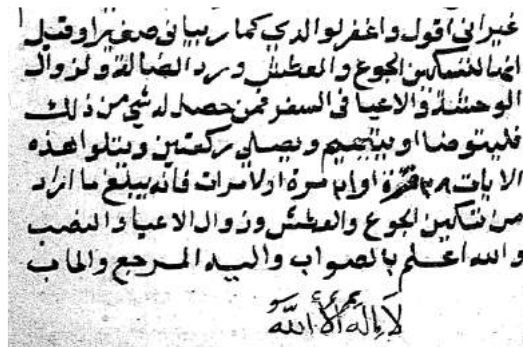 غيراني اقول واغفر لوالدي كما ربياني صغيرا وقيل
انها لتسكين الجوع والعطش ورد الضالة ولزوال
الوحشة والاعيا في السفر فمن حصل له شي من ذلك
فليتوضا او يتيمم ويصلي ركعتين ويتلوا هذه
الايات مرة او مرات فانه يبلغ ما اراد
من تسكين الجوع والعطش وزوال الاعيا والنصب
والله اعلم بالصواب واليه المرجع والماب
لا اله الا الله